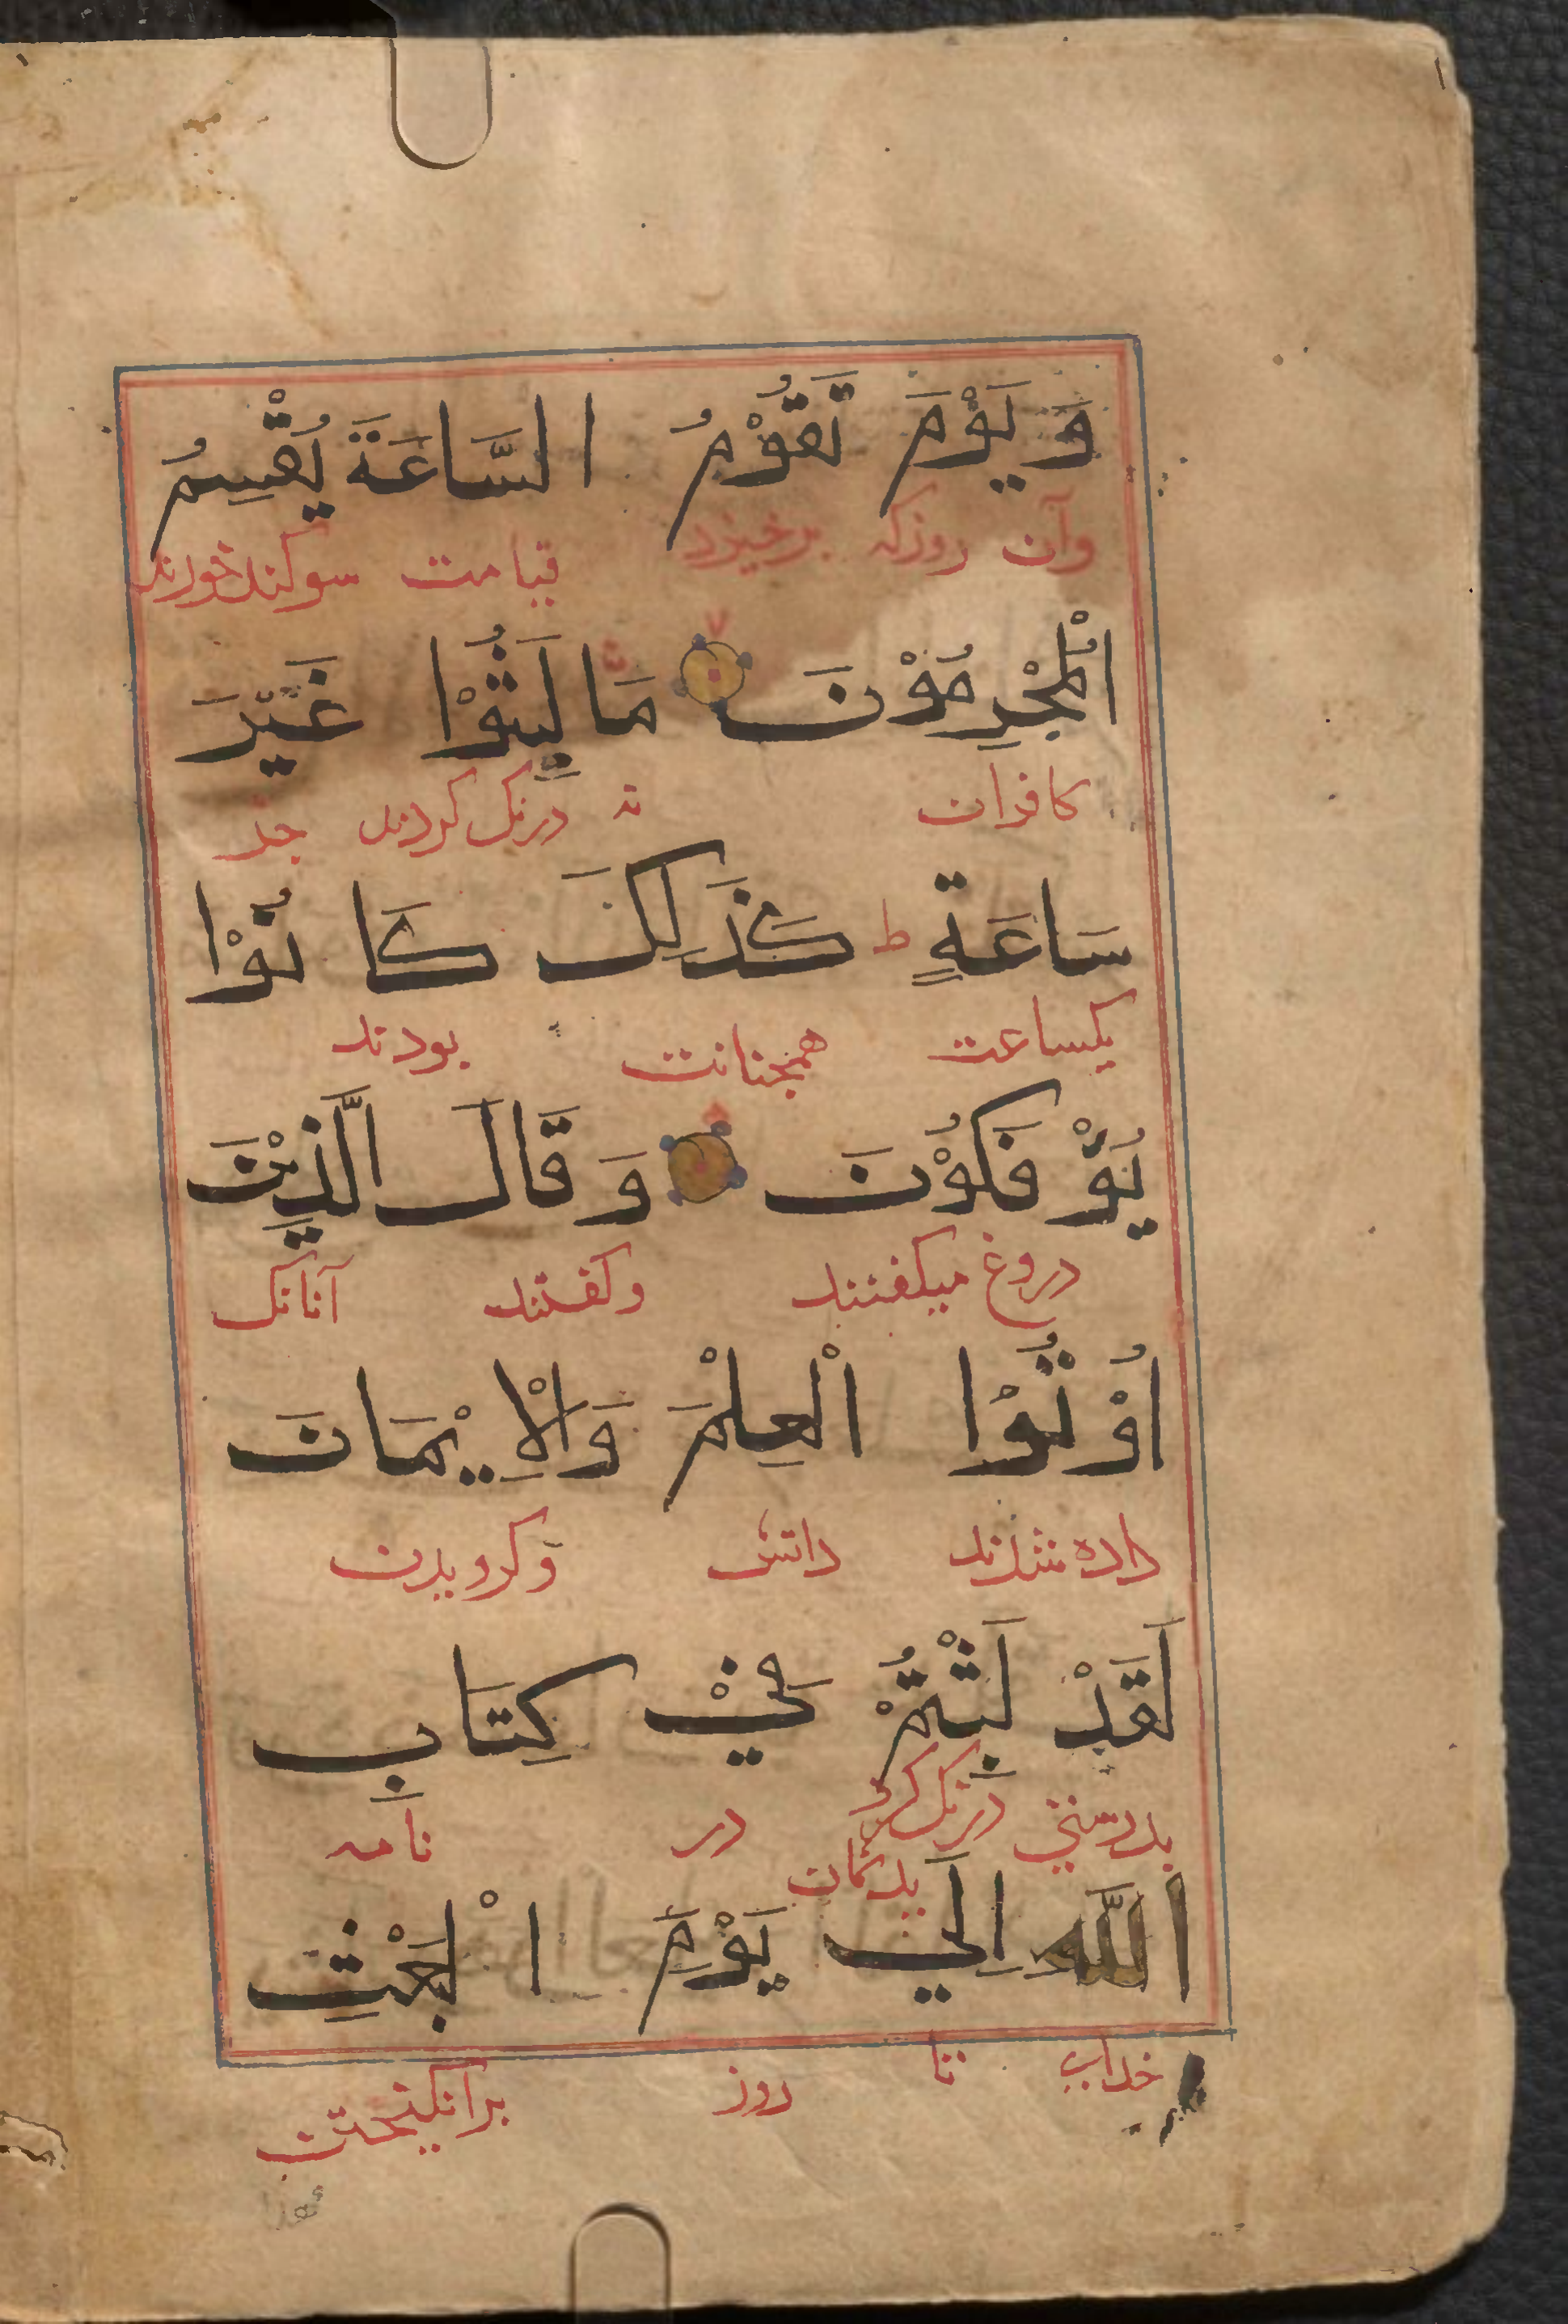 وَ يَوْمَ تَقُوْمُ السَّاعَةَ يُقْسِمُ
وآن روزکه برخیزد قیامت سوکندخورند
الْمُجْرِمُوْنَ مَا لَبِثُوْا غَيْرَ
کافران نه درنک کردند جز
سَاعَةٍ ط كَذَلِكَ كَانُوْا
یکساعت همچنانت بودند
يُؤْفَكُوْنَ وَقَالَ الَّذِيْنَ
دروغ میکفتند وکفتند آنانک
اُوْتُوْا الْعِلْمَ وَالْاِيْمَانَ
داده شدند دانش وکرویدن
لَقَدْ لَبِثْتُمْ فِيْ كِتَابِ
بدرستی درنک کرد در نامه
یدتان
اللَّهِ اِلَي يَوْمِ الْبَعْثِ
خدای تا روز برانکیختن
فهذا